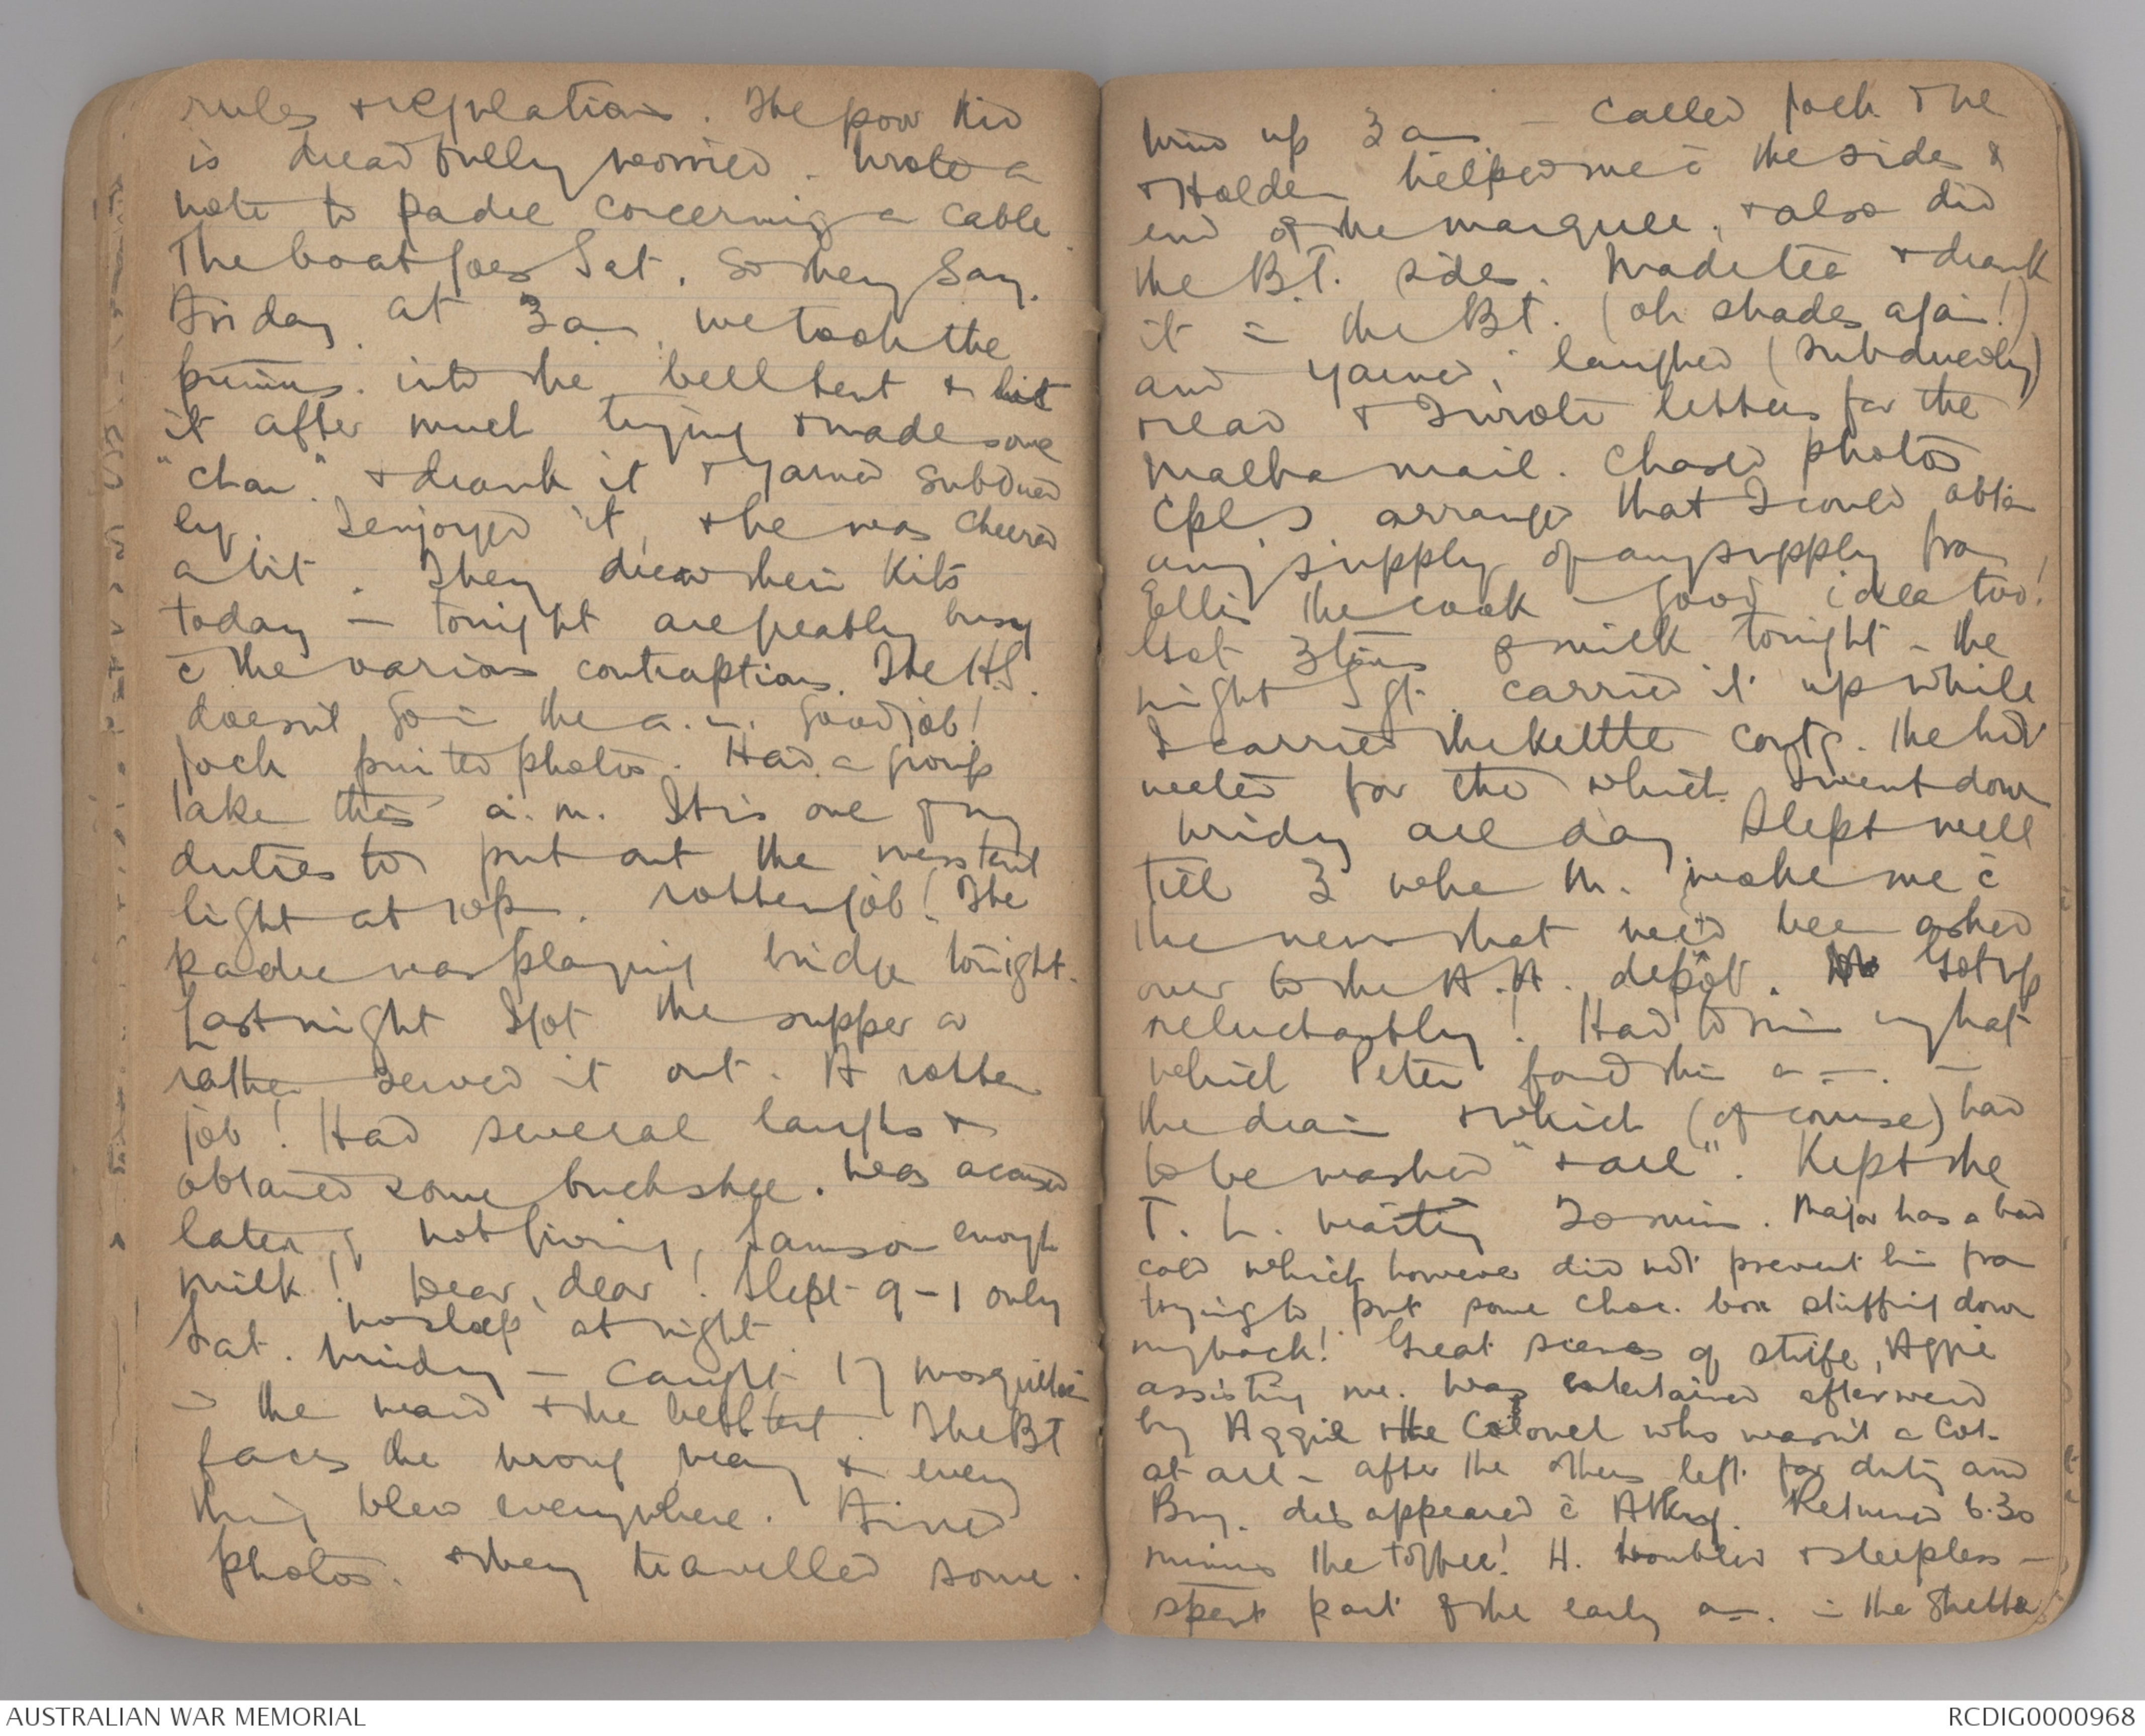 rules & regulations. The poor kid
is dreadfully worried. Wrote a
note to padre concerning a cable.
The boat goes Sat. so they say.
Friday. at 3 am we took the
primus. into the bell tent & lit
it after much trying & made some
"char." & drank it & yarned subdued
ly. I enjoyed it, & he was cheered
a bit. They drew their kits
today - tonight are greatly busy
c̄ the various contraptions. The H.S.
doesn't go in the a.m. Good job!
Jock printed photos. Had a group
take this a.m. It is one of my
duties to put out the mess tent
light at 10 pm. rotten job! The
padre was playing bridge tonight.
Last night I got the supper or
rather served it out. A rotten
job! Had several laughs &
obtained some buckshee. Was accused
later of not giving Samson enough
milk! Dear, dear! Slept 9-1 only
no sleep at night.
Sat. Windy - caught 17 mosquitoes
in the ward & the bell tent. The BT
faces the wrong way & every
thing blew everywhere. Fixed
photos. & they travelled some.
wind up 3 am - called Jock & he
& Holden helped me c̄ the sides &
end of the marquee, & also did
the B.T. sides. Made tea & drank
it in the BT. (oh shades again!)
and yarned, laughed (subduedly)
read & I wrote letters for the
Malta mail. Chased photos
Cpl J arranged that I could obtain
any supply of any supply from
Ellis the cook - good idea too!
Got 3 tins of milk tonight - the
night Sgt. carried it up while
I carried the kettle contg. the hot
water for the which I went down
Windy all day Slept well
till 3 when M. woke me c̄
the news that we'd been asked
over to the A.H. depôt. Got up
reluctantly! Had to rinse my hat
which Peter found this a.m. in
the drain & which (of course) had
to be washed "& all". Kept the
T. L. waiting 20 mins. Major has a bad
cold which however did not prevent him from
trying to put some choc. box stuffing down
my back! Great scenes of strife, Aggie
assisting me. Was entertained afterward
by Aggie & the Colonel who wasn't a Col.
at all - after the others left for duty and
Bry. disappeared c̄ Returned 6.30
minus the toffee! H. troubled & sleepless -
spent part of the early am. in the
AUSTRALIAN WAR MEMORIAL
RCDIG0000968